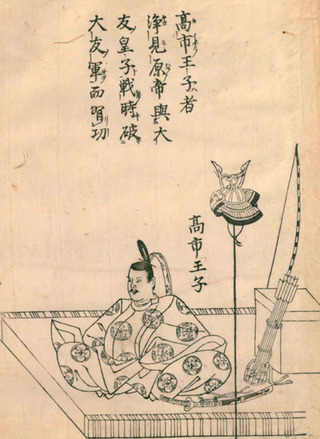 高市王子者
浄見原帝與大
友皇子戦時破
大友軍而有功
高市王子